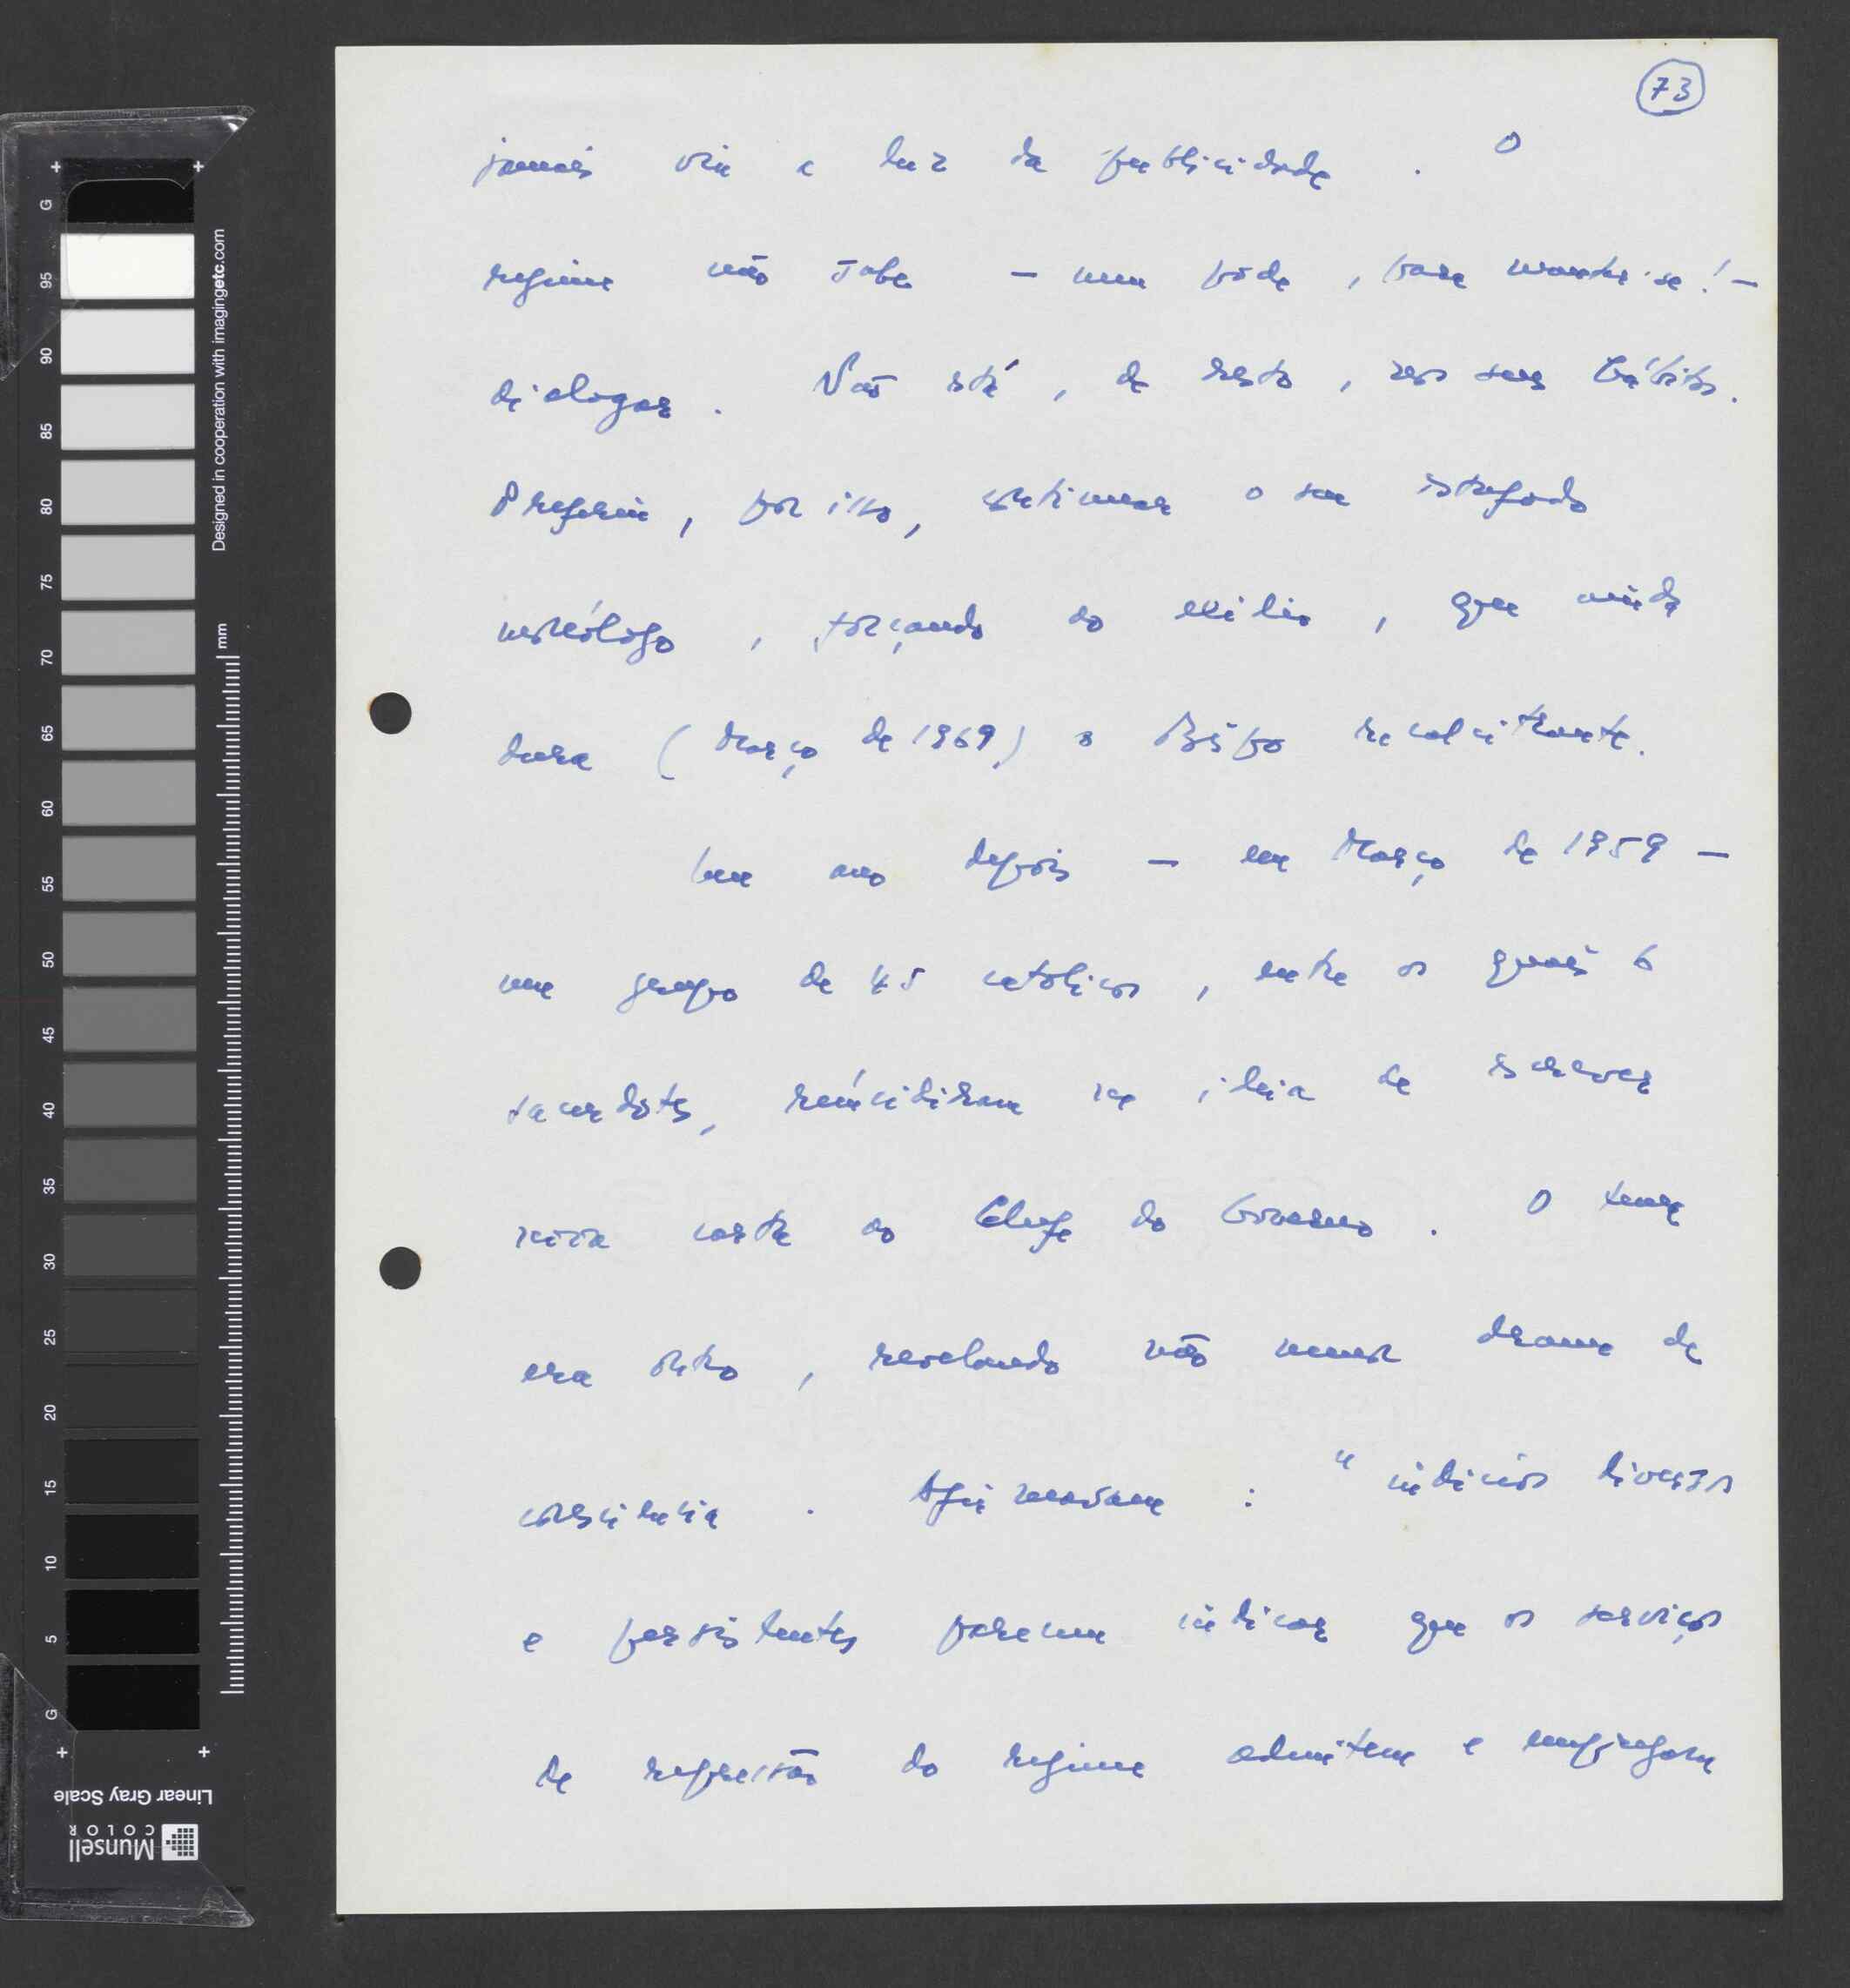 73
jamais viu a luz da publicidade. O
regime não sabe — nem pode, para manter-se! —
dialogar. Não está, de resto, nos seus hábitos.
Preferiu, por isso, continuar o seu estafado
monólogo, forçando ao exílio, que ainda
dura (Março de 1969) o Bispo recalcitrante.
Um ano depois — em Março de 1959 —
um grupo de 45 católicos, entre os quais 6
sacerdotes, reincidiram na ideia de escrever
nova carta ao Chefe do Governo. O tema
era outro, revelando não menor drama de
consciência. Afirmavam: "indícios diversos
e persistentes parecem indicar que os serviços
de repressão do regime admitem e empregam
Designed in cooperation with imagingetc.com
mm
G
95
90
85
80
75
70
65
60
55
50
45
40
35
30
25
20
15
10
5
G
Linear Gray Scale
Munsell
COLOR